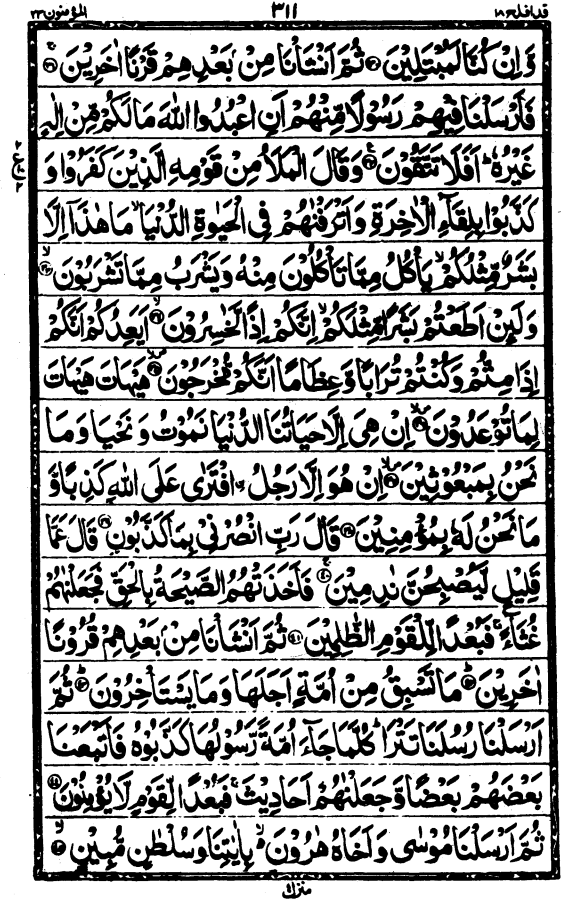 قد افلح ۱۸ ۳۱۱ المؤمنون ۲۳
وَّاِنْ كُنَّا لَمُبْتَلِيْنَ ۝۳۰ ثُمَّ اَنْشَاْنَا مِنْۢ بَعْدِهِمْ قَرْنًا اٰخَرِيْنَ ۝۳۱
فَاَرْسَلْنَا فِيْهِمْ رَسُوْلًا مِّنْهُمْ اَنِ اعْبُدُوا اللّٰهَ مَا لَكُمْ مِّنْ اِلٰهٍ
غَيْرُهٗ ؕ اَفَلَا تَتَّقُوْنَ ۝۳۲ وَقَالَ الْمَلَاُ مِنْ قَوْمِهِ الَّذِيْنَ كَفَرُوْا وَ
كَذَّبُوْا بِلِقَآءِ الْاٰخِرَةِ وَاَتْرَفْنٰهُمْ فِى الْحَيٰوةِ الدُّنْيَا ۙ مَا هٰذَاۤ اِلَّا
بَشَرٌ مِّثْلُكُمْ ۙ يَاْكُلُ مِمَّا تَاْكُلُوْنَ مِنْهُ وَيَشْرَبُ مِمَّا تَشْرَبُوْنَ ۝۳۳
وَلَئِنْ اَطَعْتُمْ بَشَرًا مِّثْلَكُمْ ۙ اِنَّكُمْ اِذًا لَّخٰسِرُوْنَ ۝۳۴ اَيَعِدُكُمْ اَنَّكُمْ
اِذَا مِتُّمْ وَكُنْتُمْ تُرَابًا وَّعِظَامًا اَنَّكُمْ مُّخْرَجُوْنَ ۝۳۵ هَيْهَاتَ هَيْهَاتَ
لِمَا تُوْعَدُوْنَ ۝۳۶ اِنْ هِىَ اِلَّا حَيَاتُنَا الدُّنْيَا نَمُوْتُ وَنَحْيَا وَمَا
نَحْنُ بِمَبْعُوْثِيْنَ ۝۳۷ اِنْ هُوَ اِلَّا رَجُلُ ۨافْتَرٰى عَلَى اللّٰهِ كَذِبًا وَّ
مَا نَحْنُ لَهٗ بِمُؤْمِنِيْنَ ۝۳۸ قَالَ رَبِّ انْصُرْنِىْ بِمَا كَذَّبُوْنِ ۝۳۹ قَالَ عَمَّا
قَلِيْلٍ لَّيُصْبِحُنَّ نٰدِمِيْنَ ۝۴۰ فَاَخَذَتْهُمُ الصَّيْحَةُ بِالْحَقِّ فَجَعَلْنٰهُمْ
غُثَآءً ۚ فَبُعْدًا لِّلْقَوْمِ الظّٰلِمِيْنَ ۝۴۱ ثُمَّ اَنْشَاْنَا مِنْۢ بَعْدِهِمْ قُرُوْنًا
اٰخَرِيْنَ ۝۴۲ مَا تَسْبِقُ مِنْ اُمَّةٍ اَجَلَهَا وَمَا يَسْتَاْخِرُوْنَ ۝۴۳ ثُمَّ
اَرْسَلْنَا رُسُلَنَا تَتْرَا ؕ كُلَّمَا جَآءَ اُمَّةً رَّسُوْلُهَا كَذَّبُوْهُ فَاَتْبَعْنَا
بَعْضَهُمْ بَعْضًا وَّجَعَلْنٰهُمْ اَحَادِيْثَ ۚ فَبُعْدًا لِّقَوْمٍ لَّا يُؤْمِنُوْنَ ۝۴۴
ثُمَّ اَرْسَلْنَا مُوْسٰى وَاَخَاهُ هٰرُوْنَ ۙ بِاٰيٰتِنَا وَسُلْطٰنٍ مُّبِيْنٍ ۝۴۵